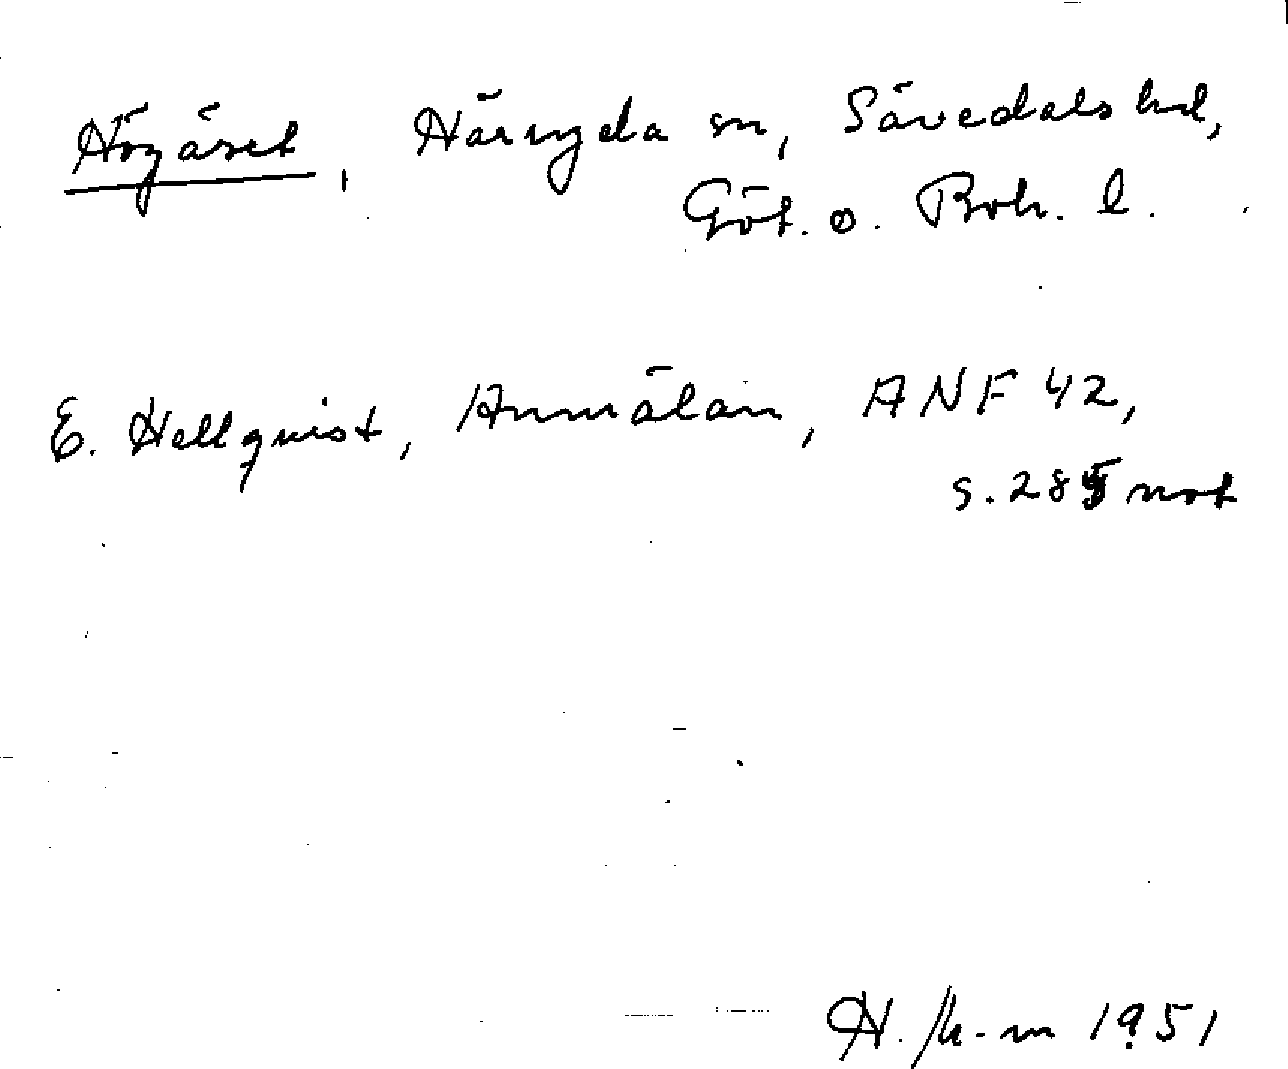 Högåset, Härryda sn, Sävedals hd,
Göt. o. Boh. l.
E. Hellquist, Anmälan, ANF 42,
s. 285 not
1951